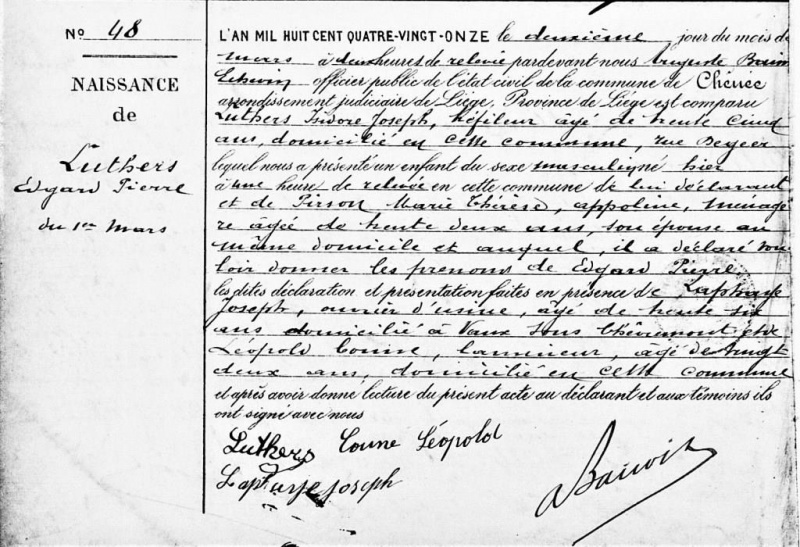 No 48
NAISSANCE
de
Luthers
Edgard Pierre
du 1er Mars
L'AN MIL HUIT CENT QUATRE-VINGT-ONZE le deuxième jour du mois de
Mars à deux heures de relevée pardevant nous
officier public de l'état civil de la commune de Chênée
arrondissement judiciaire de Liège, Province de Liège est comparu
Luthers Isidore Joseph, âgé de trente cinq
ans, domicilié en cette commune, rue
lequel nous a présenté un enfant du sexe masculin né hier
à une heure de relevée en cette commune de lui déclarant
et de Pirson Marie Thérèse, appoline, ménagè
re âgée de trente deux ans, son épouse au
même domicile et auquel il a déclaré vou
loir donner les prenoms de Edgard Pierre
les dites déclaration et présentation faites en présence de
Joseph, ouvrier d'usine, âgé de trente six
ans domicilié à Vaux sous Chèvremont et de
Léopold Coune, lamineur, âgé de vingt
deux ans, domicilié en cette commune
et après avoir donné lecture du présent acte au déclarant et aux témoins ils
ont signé avec nous
Luthers Coune Léopold
Joseph